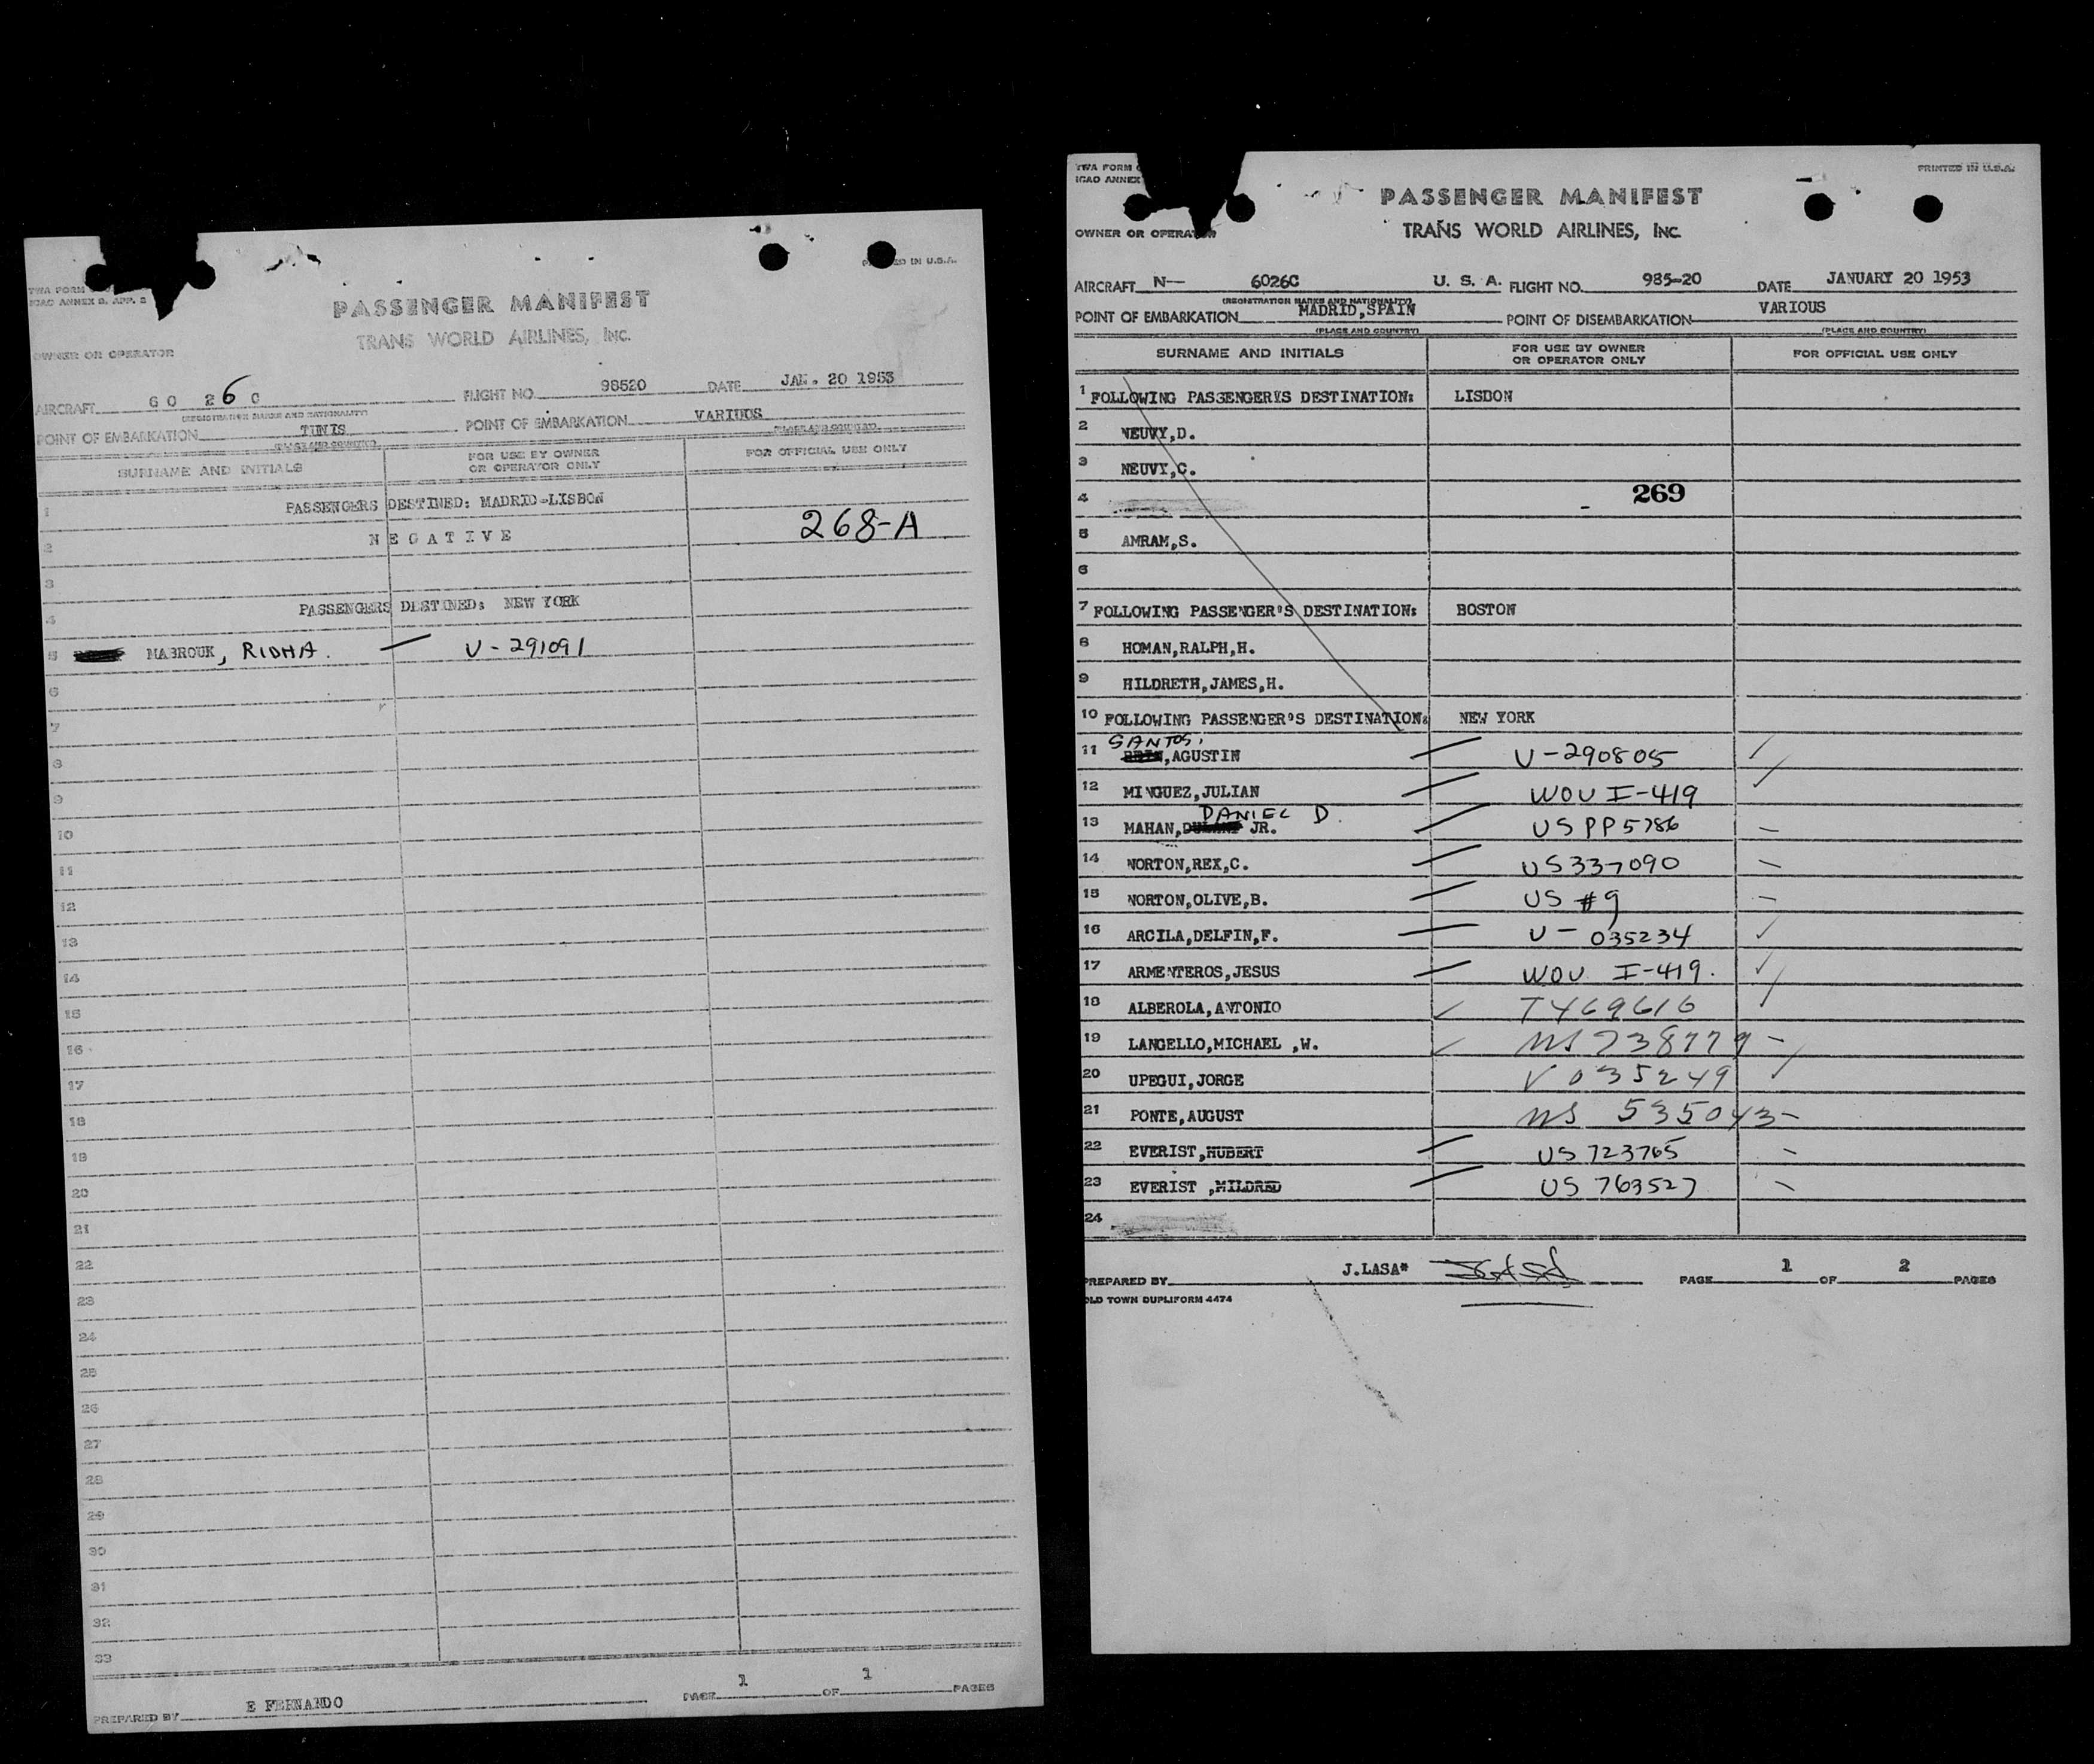 TWA FORM
ICAO ANNEX 9, APP. 3
PRINTED IN U.S.A.
PASSENGER MANIFEST
TRANS WORLD AIRLINES, INC.
OWNER OR OPERATOR
AIRCRAFT 60 26 C FLIGHT NO 98520 DATE JAN. 20 1953
(REGISTRATION MARKS AND NATIONALITY)
POINT OF EMBARKATION TUNIS POINT OF EMBARKATION VARIUOS
(PLACE AND COUNTRY) (PLACE AND COUNTRY)
SURNAME AND INITIALS FOR USE BY OWNER OR OPERATOR ONLY FOR OFFICIAL USE ONLY
1 PASSENGERS DESTINED: MADRID-LISBON
2 NEGATIVE 268-A
3
4 PASSENGERS DESTINED: NEW YORK
5 MABROUK, RIDHA. U-291091
6
7
8
9
10
11
12
13
14
15
16
17
18
19
20
21
22
23
24
25
26
27
28
29
30
31
32
33
PREPARED BY E FERNANDO PAGE 1 OF 1 PAGES
TWA FORM
ICAO ANNEX
PRINTED IN U.S.A.
PASSENGER MANIFEST
TRANS WORLD AIRLINES, INC.
OWNER OR OPERATOR
AIRCRAFT N-- 6026C U. S. A. FLIGHT NO. 985-20 DATE JANUARY 20 1953
(REGISTRATION MARKS AND NATIONALITY)
POINT OF EMBARKATION MADRID,SPAIN POINT OF DISEMBARKATION VARIOUS
(PLACE AND COUNTRY) (PLACE AND COUNTRY)
SURNAME AND INITIALS FOR USE BY OWNER OR OPERATOR ONLY FOR OFFICIAL USE ONLY
1 FOLLOWING PASSENGER'S DESTINATION: LISBON
2 NEUVY,D.
3 NEUVY,C.
4 269
5 AMRAM,S.
6
7 FOLLOWING PASSENGER'S DESTINATION: BOSTON
8 HOMAN,RALPH,H.
9 HILDRETH,JAMES,H.
10 FOLLOWING PASSENGER'S DESTINATION: NEW YORK
11 SANTOS, ,AGUSTIN U-290805
12 MINGUEZ,JULIAN WOV I-419
13 MAHAN, DANIEL D. JR. US PP 5786
14 NORTON,REX,C. US 337090
15 NORTON,OLIVE,B. US #9
16 ARCILA,DELFIN,F. U-035234
17 ARMENTEROS,JESUS WOV I-419.
18 ALBEROLA,ANTONIO T469616
19 LANGELLO,MICHAEL ,W.
20 UPEGUI,JORGE V 035249
21 PONTE,AUGUST US 535043
22 EVERIST,HUBERT US 723765
23 EVERIST ,MILDRED US 763527
24
PREPARED BY J.LASA* PAGE 1 OF 2 PAGES
OLD TOWN DUPLIFORM 4474